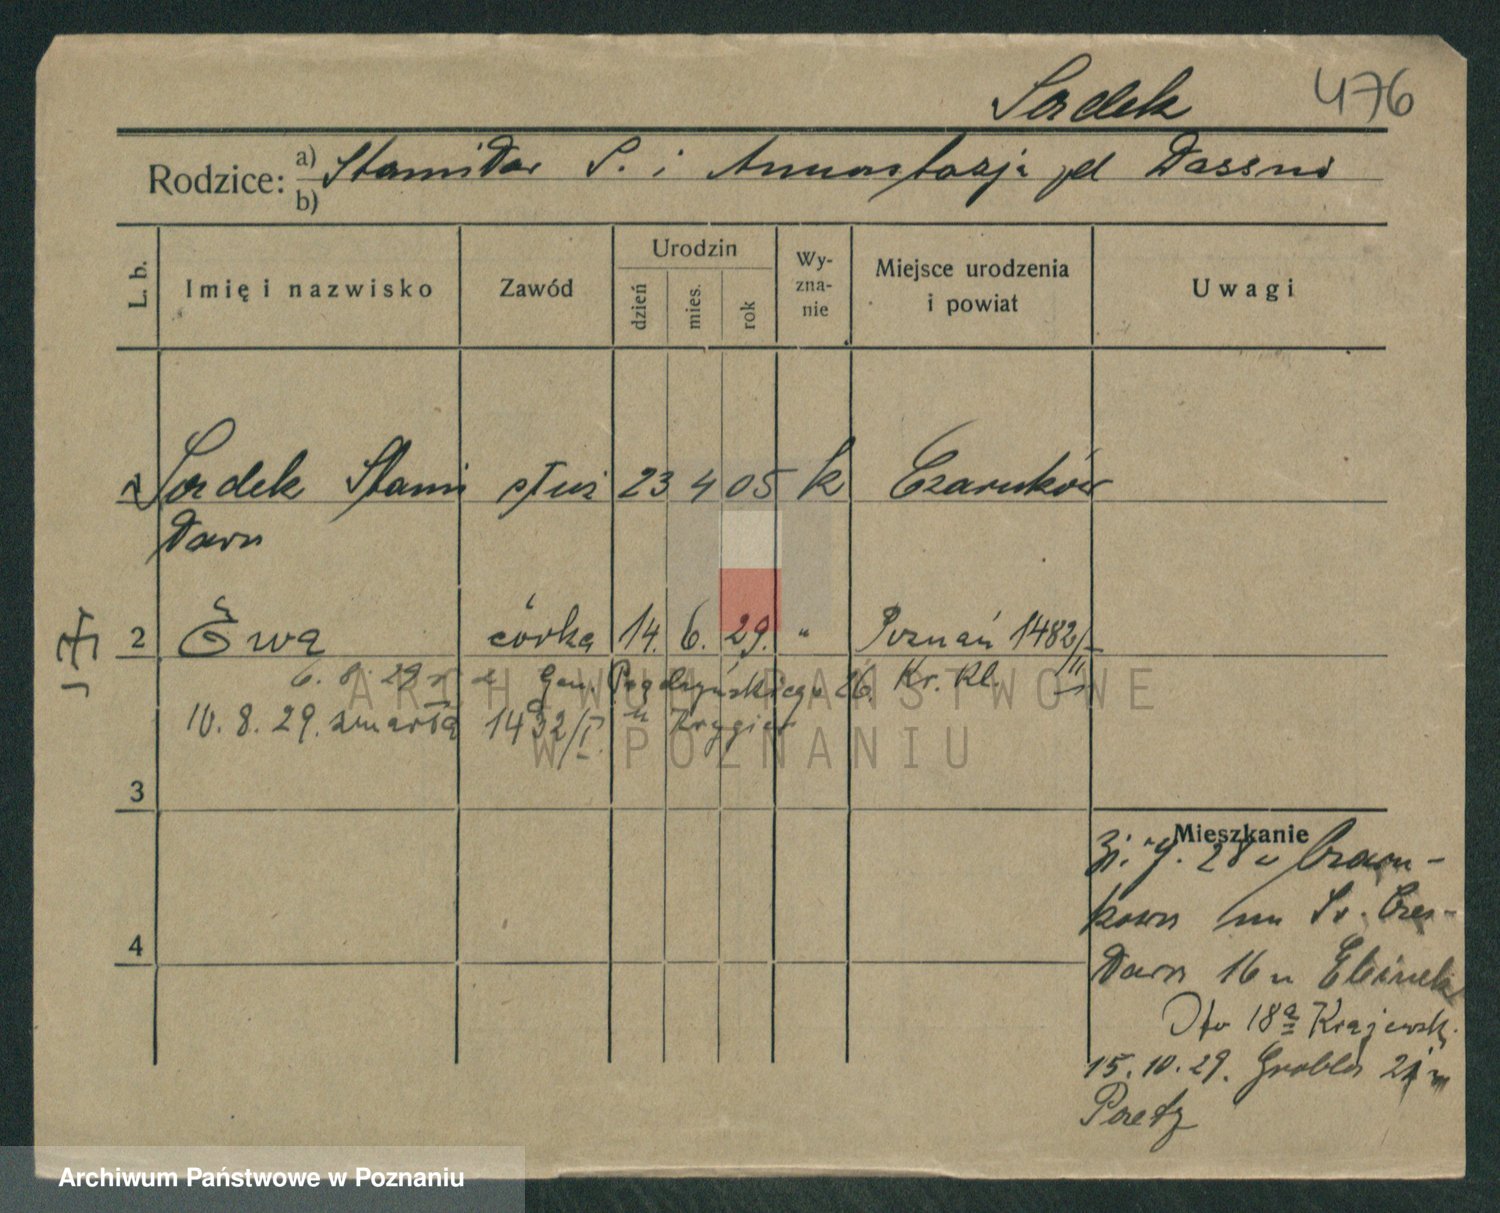 Sordek 476
Rodzice: a) Stanisław S. i Annastazja zd
b)
L. b.
Imię i nazwisko
Zawód
Urodzin
dzień
mies.
rok
Wy-
zna-
nie
Miejsce urodzenia
i powiat
Uwagi
1 Sordek Stani służ 23 4 05 k Czarnków
sława
2 Ewa córka 14. 6. 29. " Poznań 1482/II
6. 8. 29 Gen. Prądzyńskiego 26. Kr. Kl.
10. 8. 29. zmarła 1432/I.
3
Mieszkanie
4
28 Czarn-
kowa Św. Czes-
ława 16
18a Krajewsk.
15. 10. 29. Grobla
ARCHIWUM PAŃSTWOWE
W POZNANIU
Archiwum Państwowe w Poznaniu